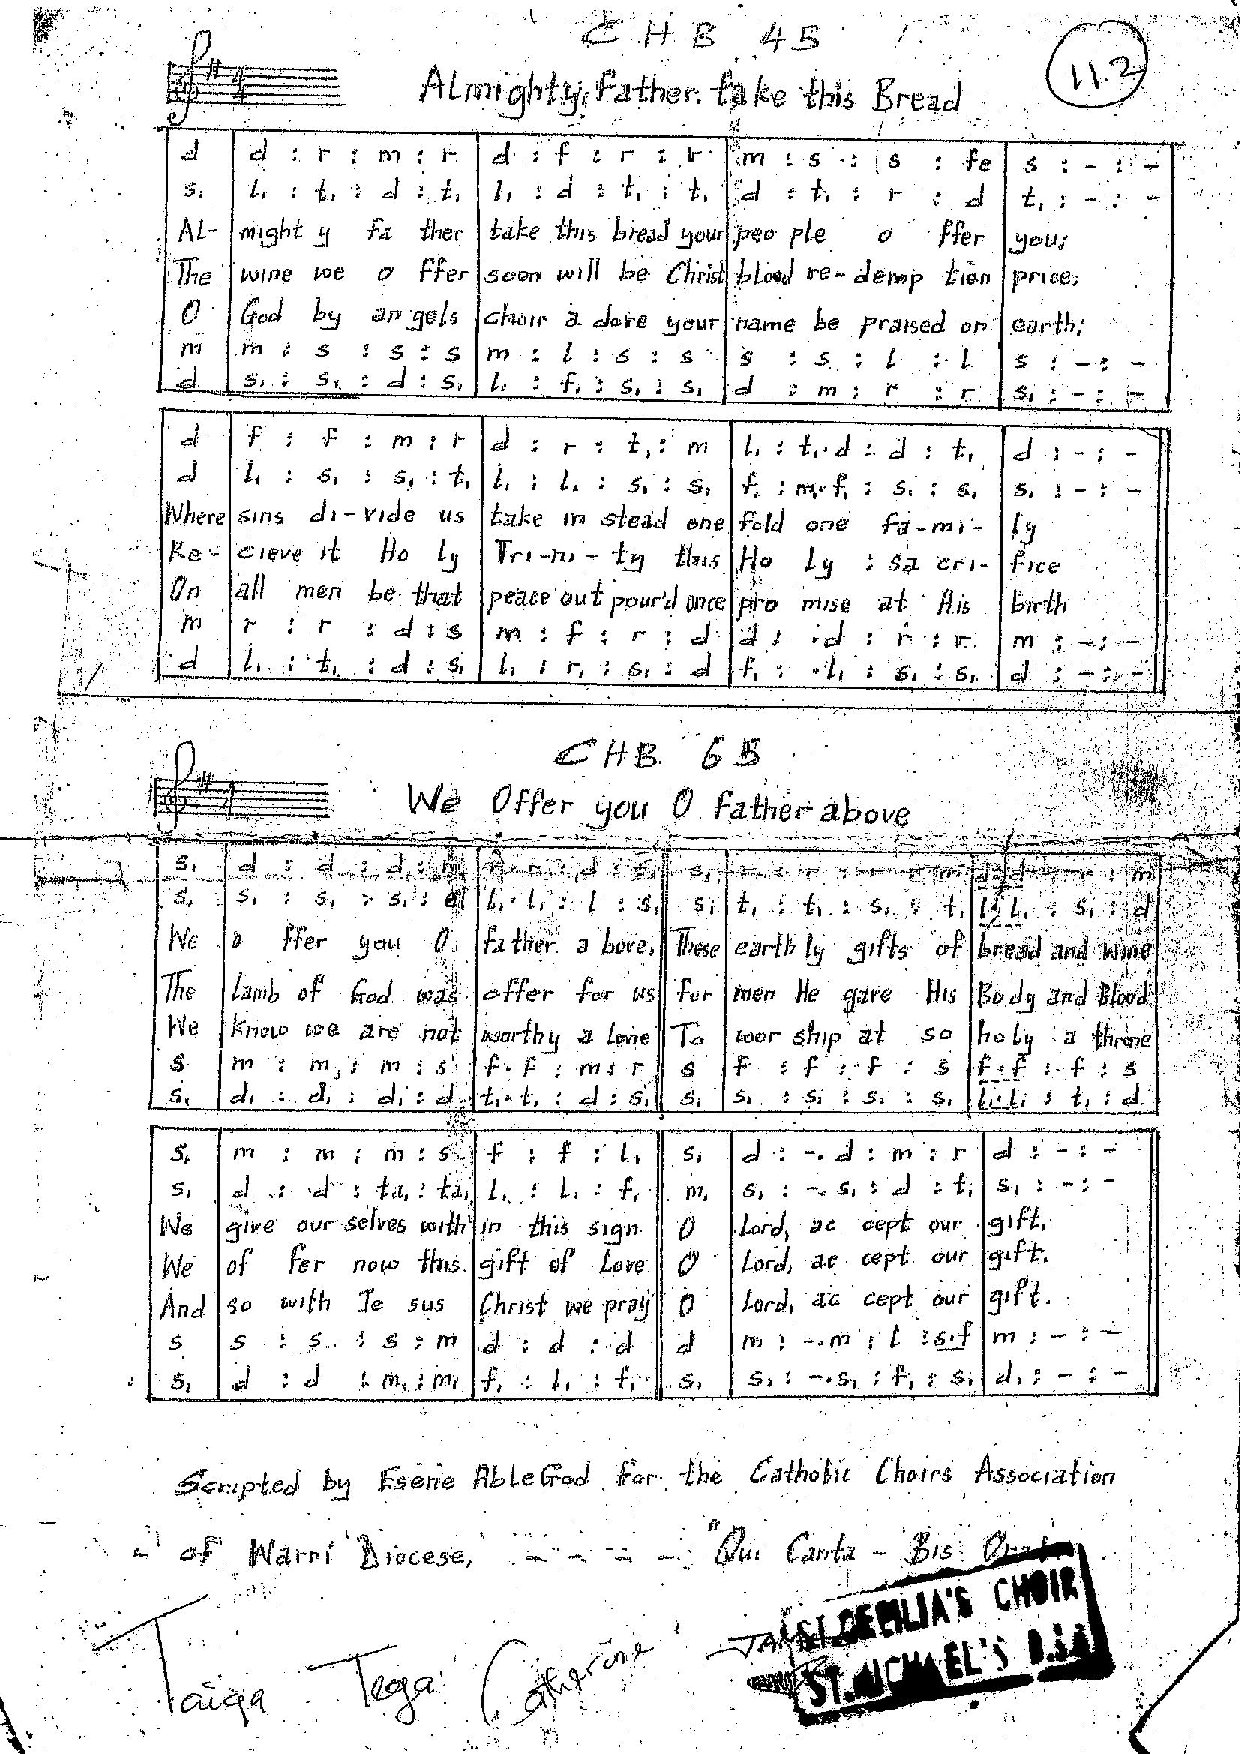 CHB 45
11.2
Almighty, Father. take this Bread
d | d : r : m : r | d : f : r : r | m : s : s : fe | s : - : -
s, | l, : t, : d : t, | l, : d : t, : t, | d : t, : r : d | t, : - : -
AL- | might y fa ther | take this bread your | peo ple o ffer | you;
The | wine we o ffer | soon will be Christ | blood re-demp tion | price;
O | God by an gels | choir a dore your | name be praised on | earth;
m | m : s : s : s | m : l : s : s | s : s : l : l | s : - : -
d | s, : s, : d : s, | l, : f, : s, : s, | d : m : r : r | s, : - : -
d | f : f : m : r | d : r : t, : m | l, : t,.d : d : t, | d : - : -
d | l, : s, : s, : t, | l, : l, : s, : s, | f, : m,.f, : s, : s, | s, : - : -
Where | sins di-vide us | take in stead one | fold one fa-mi- | ly
Re- | cieve it Ho ly | Tri-ni-ty this | Ho ly : sa cri- | fice
On | all men be that | peace out pour'd once | pro mise at His | birth
m | r : r : d : s | m : f : r : d | d : .d : r : r | m : - : -
d | l, : t, : d : s, | l, : r, : s, : d | f, : .l, : s, : s, | d : - : -
CHB. 65
We Offer you O father above
s, | d : d : d :
s, | s, : s, : s, : d | l,.l, : l : s, | s, | t, : t, : s, : t, | l,.l, : s, : d
We | o ffer you O | father a bove, | These | earth ly gifts of | bread and wine
The | lamb of God was | offer for us | for | men He gave His | Body and Blood
We | know we are not | worthy a love | To | wor ship at so | holy a throne
s | m : m : m : s | f.f : m : r | s | f : f : f : s | f.f : f : s
s, | d, : d, : d, : d, | t,.t, : d : s, | s, | s, : s, : s, : s, | l,.l, : t, : d
s, | m : m : m : s | f : f : l, | s, | d : -.d : m : r | d : - : -
s, | d : d : ta, : ta, | l, : l, : f, | m, | s, : -.s, : d : t, | s, : - : -
We | give our selves with | in this sign | O | Lord, ac cept our | gift.
We | of fer now this | gift of Love | O | Lord, ac cept our | gift.
And | so with Je sus | Christ we pray | O | Lord, ac cept our | gift.
s | s : s : s : m | d : d : d | d | m : -.m : l : s.f | m : - : -
s, | d : d : m, : m, | f, : l, : f, | s, | s, : -.s, : f, : s, | d, : - : -
Scripted by Eserie AbleGod for the Catholic Choirs Association
of Warri Diocese, - - - - - "Qui Canta - Bis Orat
Taiga Tega Catherine
ST. CECILIA'S CHOIR
ST. MICHAEL'S